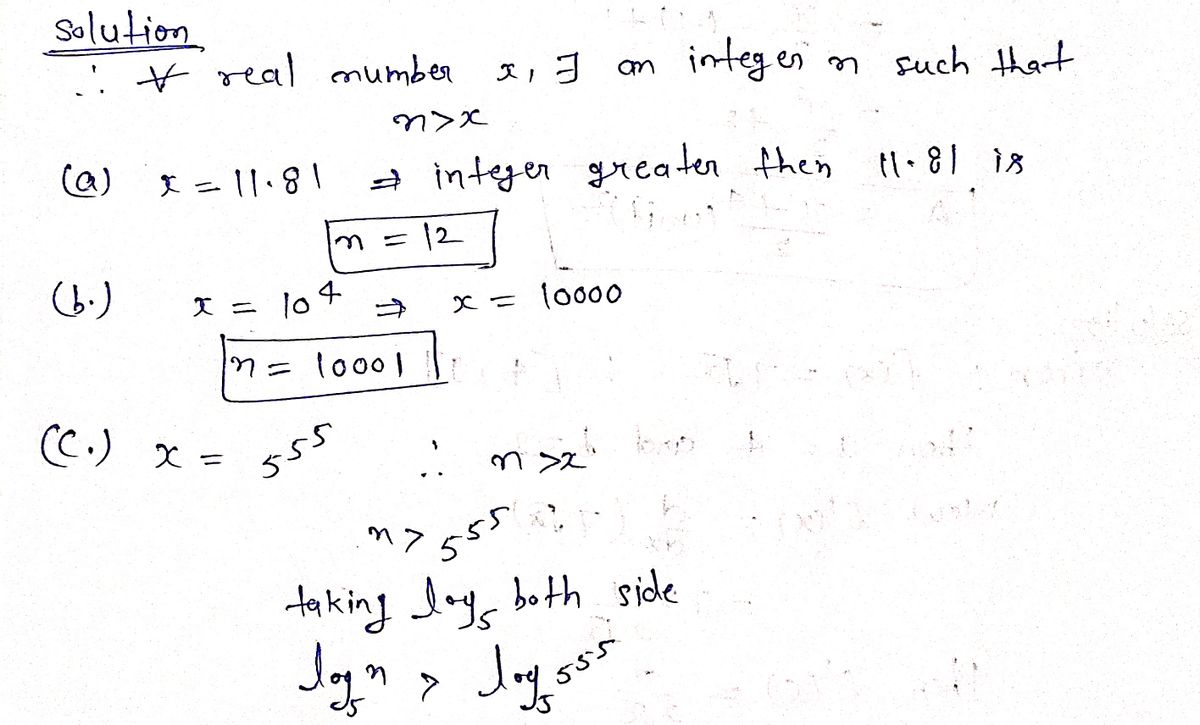 Solution
∵ ∀ real number x, ∃ an integer n such that
n>x
(a) x = 11.81 ⇒ integer greater then 11.81 is
n = 12
(b.) x = 10⁴ ⇒ x = 10000
n = 10001
(C.) x = 5^5^5 ∴ n >x
n > 5^5^5
taking log₅ both side
log₅ n > log₅ 5^5^5